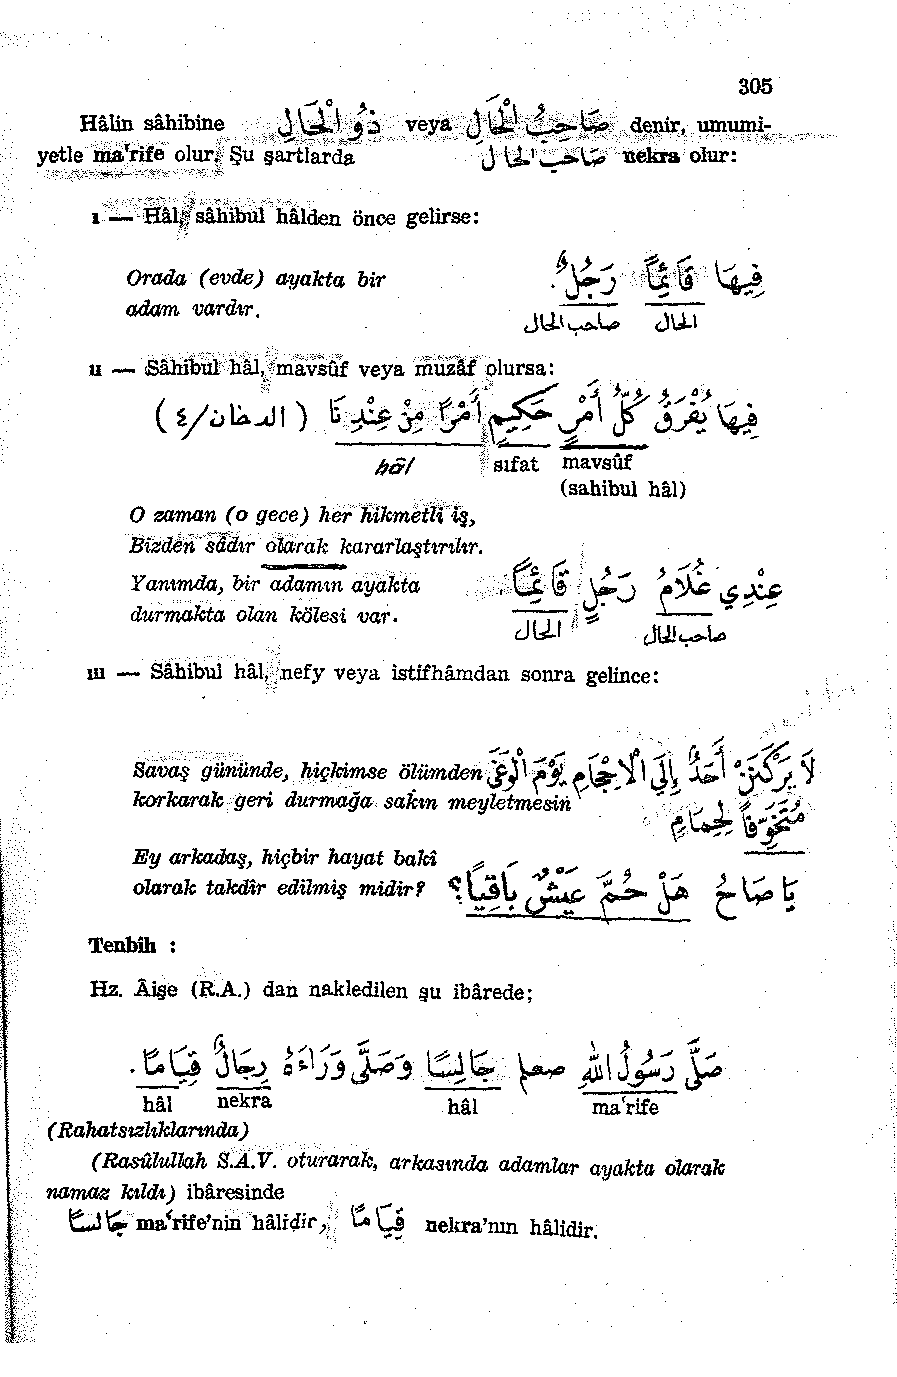 305
Hâlin sâhibine ذُو الْحَالِ veya صَاحِبُ الْحَالِ denir, umumi-
yetle ma'rife olur. Şu şartlarda صاحب الحال nekra olur:
ı — Hâl, sâhibul hâlden önce gelirse:
Orada (evde) ayakta bir فِيهَا قَائِمًا رَجُلٌ.
adam vardır. الحال صاحب الحال
ıı — Sâhibul hâl, mavsûf veya muzâf olursa:
فِيهَا يُفْرَقُ كُلُّ أَمْرٍ حَكِيمٍ أَمْرًا مِنْ عِنْدِنَا ( الدخان/٤ )
hâl sıfat mavsûf
(sahibul hâl)
O zaman (o gece) her hikmetli iş,
Bizden sâdır olarak kararlaştırılır.
Yanımda, bir adamın ayakta عِنْدِي غُلَامُ رَجُلٍ قَائِمًا
durmakta olan kölesi var. صاحب الحال الحال
ııı — Sâhibul hâl, nefy veya istifhâmdan sonra gelince:
Savaş gününde, hiçkimse ölümden لَا يَرْكَنَنْ أَحَدٌ إِلَى الْاِحْجَامِ يَوْمَ الْوَغَى
korkarak geri durmağa sakın meyletmesin مُتَخَوِّفًا لِحِمَامِ
Ey arkadaş, hiçbir hayat bakî
olarak takdîr edilmiş midir? يَا صَاحُ هَلْ حُمَّ عَيْشٌ بَاقِيًا؟
Tenbîh :
Hz. Âişe (R.A.) dan nakledilen şu ibârede;
صَلَّى رَسُولُ اللّٰهِ صعلم جَالِسًا وَصَلَّى وَرَاءَهُ رِجَالٌ قِيَامًا.
hâl nekra hâl ma'rife
(Rahatsızlıklarında)
(Rasûlullah S.A.V. oturarak, arkasında adamlar ayakta olarak
namaz kıldı) ibâresinde
جَالسًا ma'rife'nin hâlidir, قِيَامًا nekra'nın hâlidir.